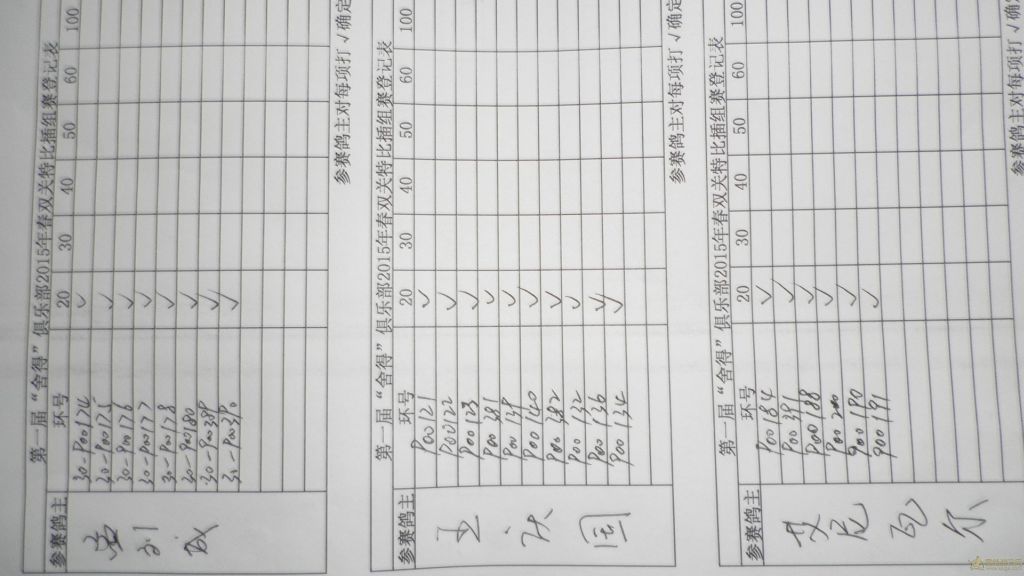 第一届“舍得”俱乐部2015年春双关特比插组赛登记表
参赛鸽主 环号 20 30 40 50 60 100
30-P00124 ✓
30-P00125 ✓
30-P00126 ✓
30-P00127 ✓
30-P00128 ✓
30-P00180 ✓
30-P00398 ✓
30-P00390 ✓
参赛鸽主对每项打√确定
第一届“舍得”俱乐部2015年春双关特比插组赛登记表
参赛鸽主 环号 20 30 40 50 60 100
国
P00121 ✓
P00122 ✓
P00123 ✓
P00381 ✓
P00138 ✓
P00140 ✓
P00382 ✓
P00132 ✓
P00136 ✓
900134 ✓
参赛鸽主对每项打√确定
第一届“舍得”俱乐部2015年春双关特比插组赛登记表
参赛鸽主 环号 20 30 40 50 60 100
艾尼瓦尔
P00184 ✓
P00391 ✓
P00188 ✓
P00200 ✓
900190 ✓
900191 ✓
参赛鸽主对每项打√确定